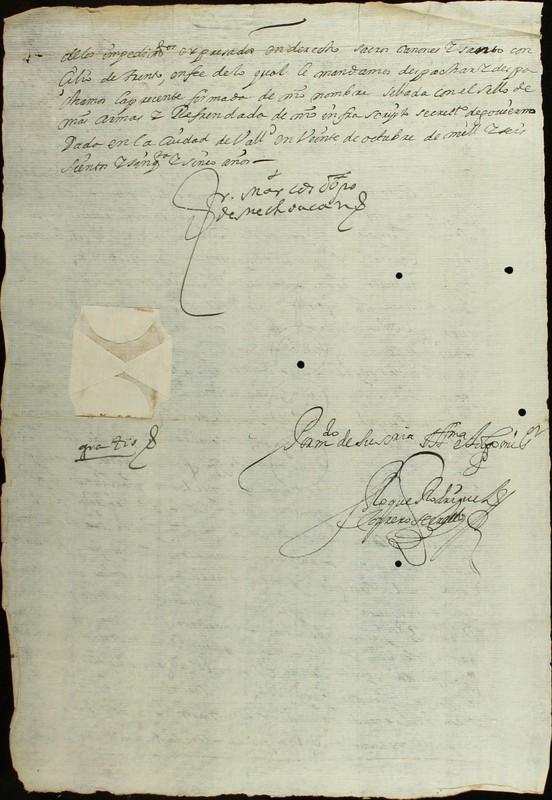 delos impedim.tos expresados en derecho sacros Canones Y santo con
cilio de trento, en fee delo qual le mandamos despachar Y despa
chamos la presente firmada de mio nombre sellada con el sello de
mis Armas Y Refrendada de mio infra scripto secret.o de govierno
Dada en la Ciudad de Vall.d en Veinte de octubre de mill Y seis
sientos Y sinq.ta Y sinco años —
fr. Marcos obpo
de Mechoacan
gratis
Por m.do de Su ss.ria Ill.ma el obpo mi s.r
Roque Rodriguez
Secret.o